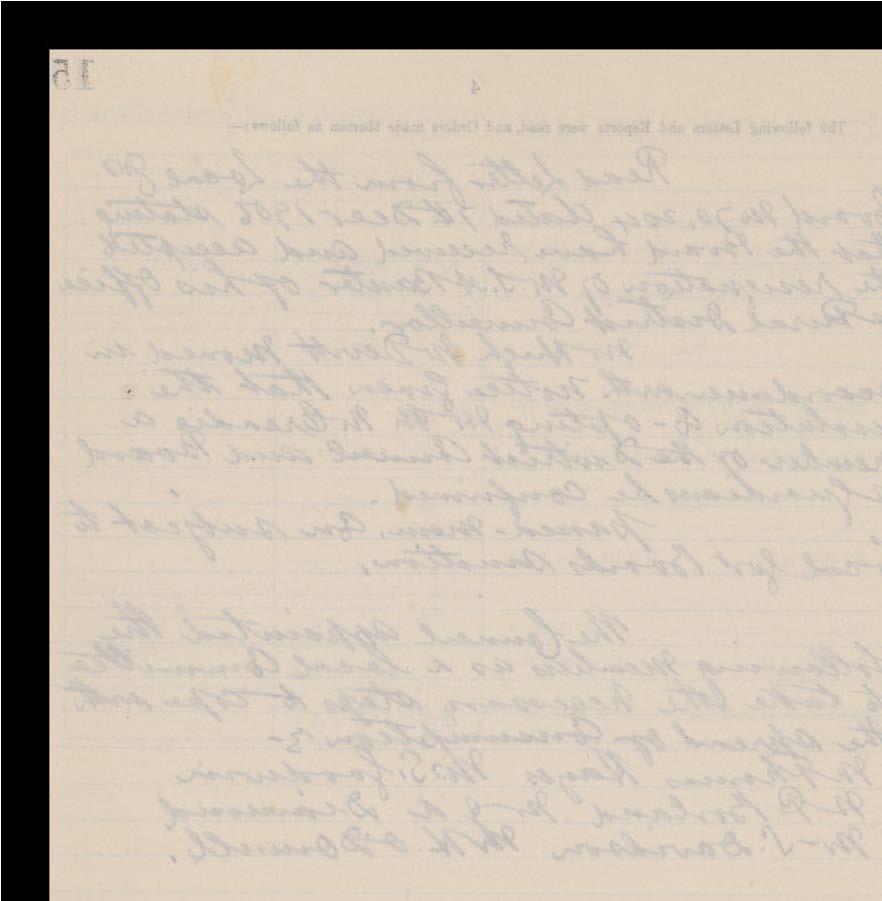 15
4
The following Letters and Reports were read, and Orders made thereon as follows:—
Read Letter from the Local Gov.
Board No 70,204 dated 7th Decr 1906 stating
that the Board have received and accepted
the resignation of Mr. Baxter of his Office
Rural District Councillor.
Mr Hugh McDevitt moved in
accordance with notice given that the
resolution Co-opting Mr M McCreadie a
member of the District Council and Board
of Guardians be confirmed.
passed. subject to
Local Govt Boards Sanction.
The Council appointed the
following members as a Local Committee
to take the necessary steps to cope with
the spread of Consumption :-
Mr Thomas Hayes Mr S. Goodwin
Mr R Borland Mr Diamond
Mr S. Davidson Mr H. O'Donnell.